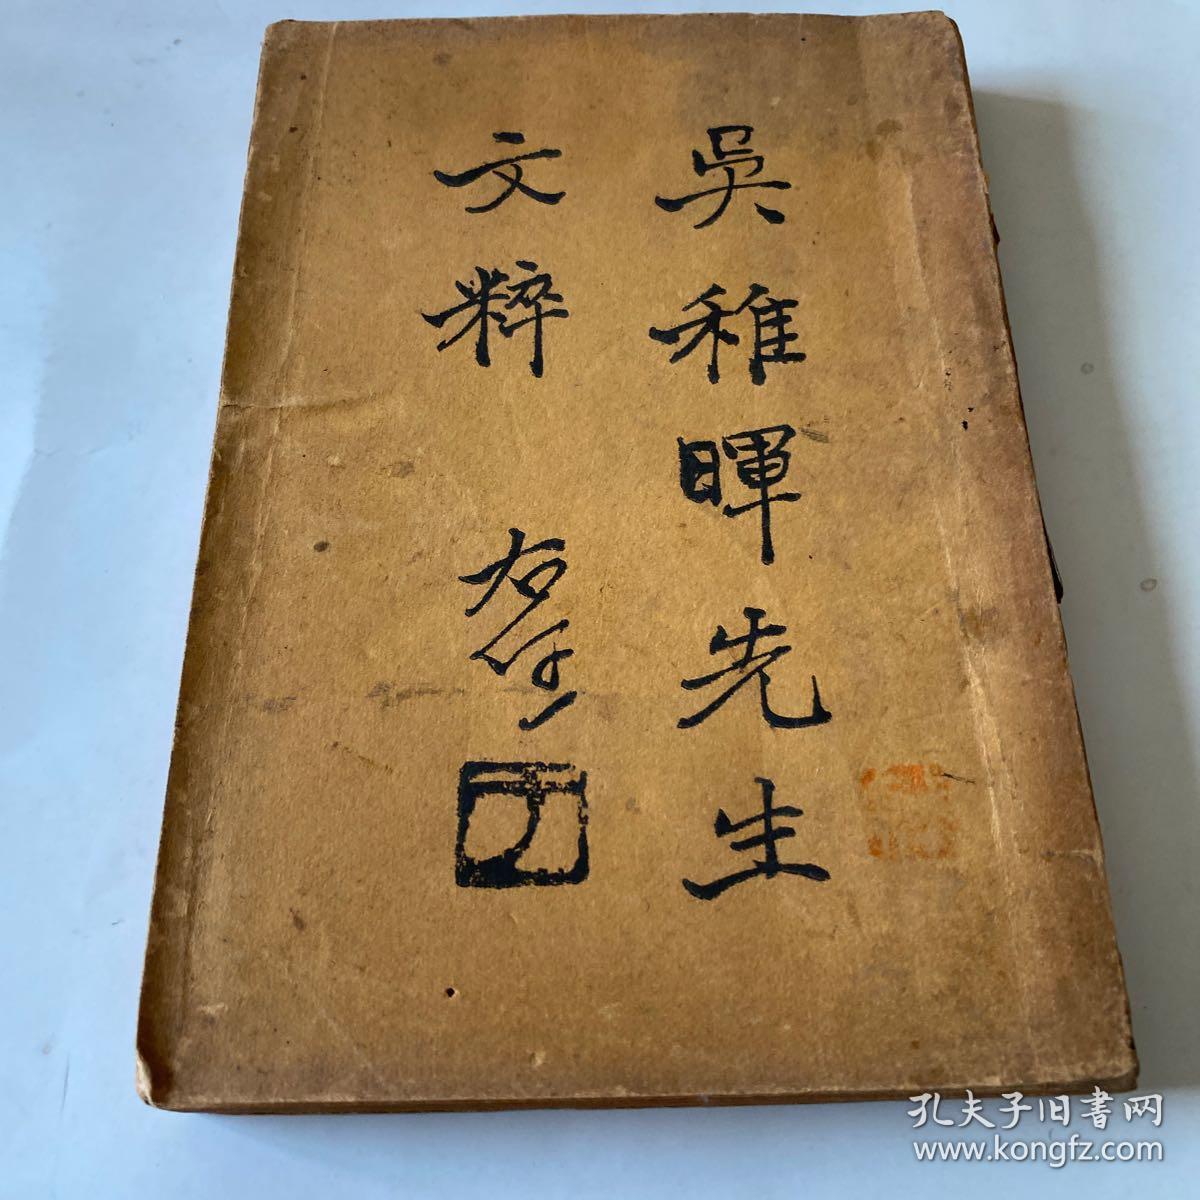 吳稚暉先生
文粹 右任
孔夫子旧書网
www.kongfz.com